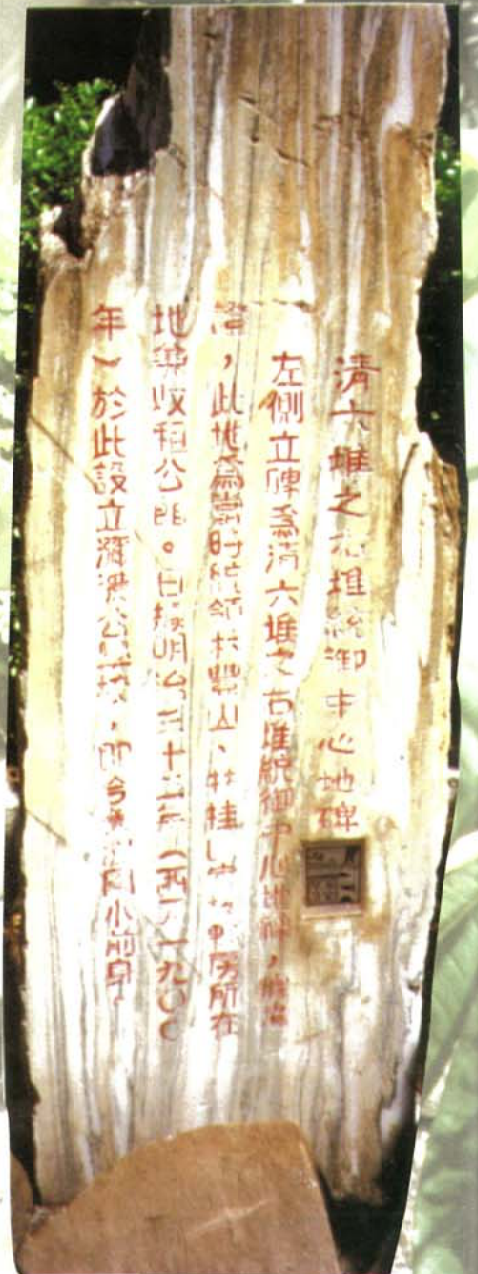 清六堆之右堆統御中心地碑
左側立碑為清六堆之右堆統御中心地碑，
，此地為當時統領林豐山、林桂山 所在
地兼收租公館。日據明治三十三年（西元一九〇〇
年）於此設立瀰濃公學校，即今美濃國小前身